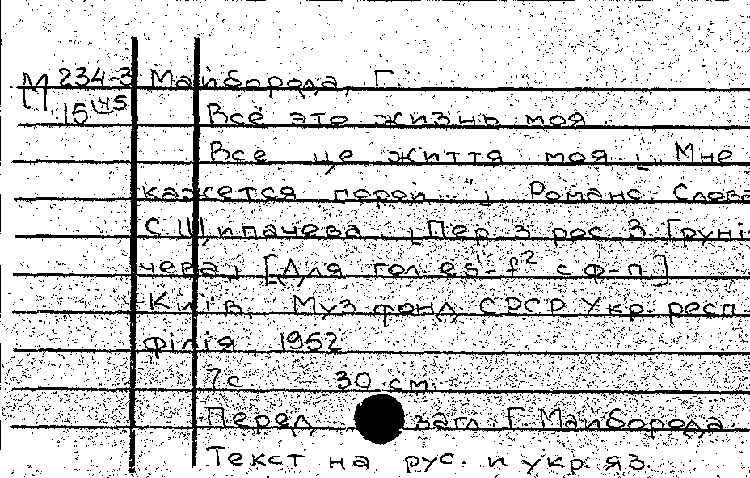 М 234-3 Майборода, Г.
Всё это жизнь моя
Все це життя моя [„Мне
кажется порой..."]. Романс. Слова
С. Щипачева. [Пер. з рос. З. Груні-
чева]. [Для гол. es¹-f² с ф-п.]
Київ. Муз. фонд СРСР Укр. респ.
філія, 1952
7 с. 30 см.
Перед загл.: Г. Майборода
Текст на рус. и укр. яз.